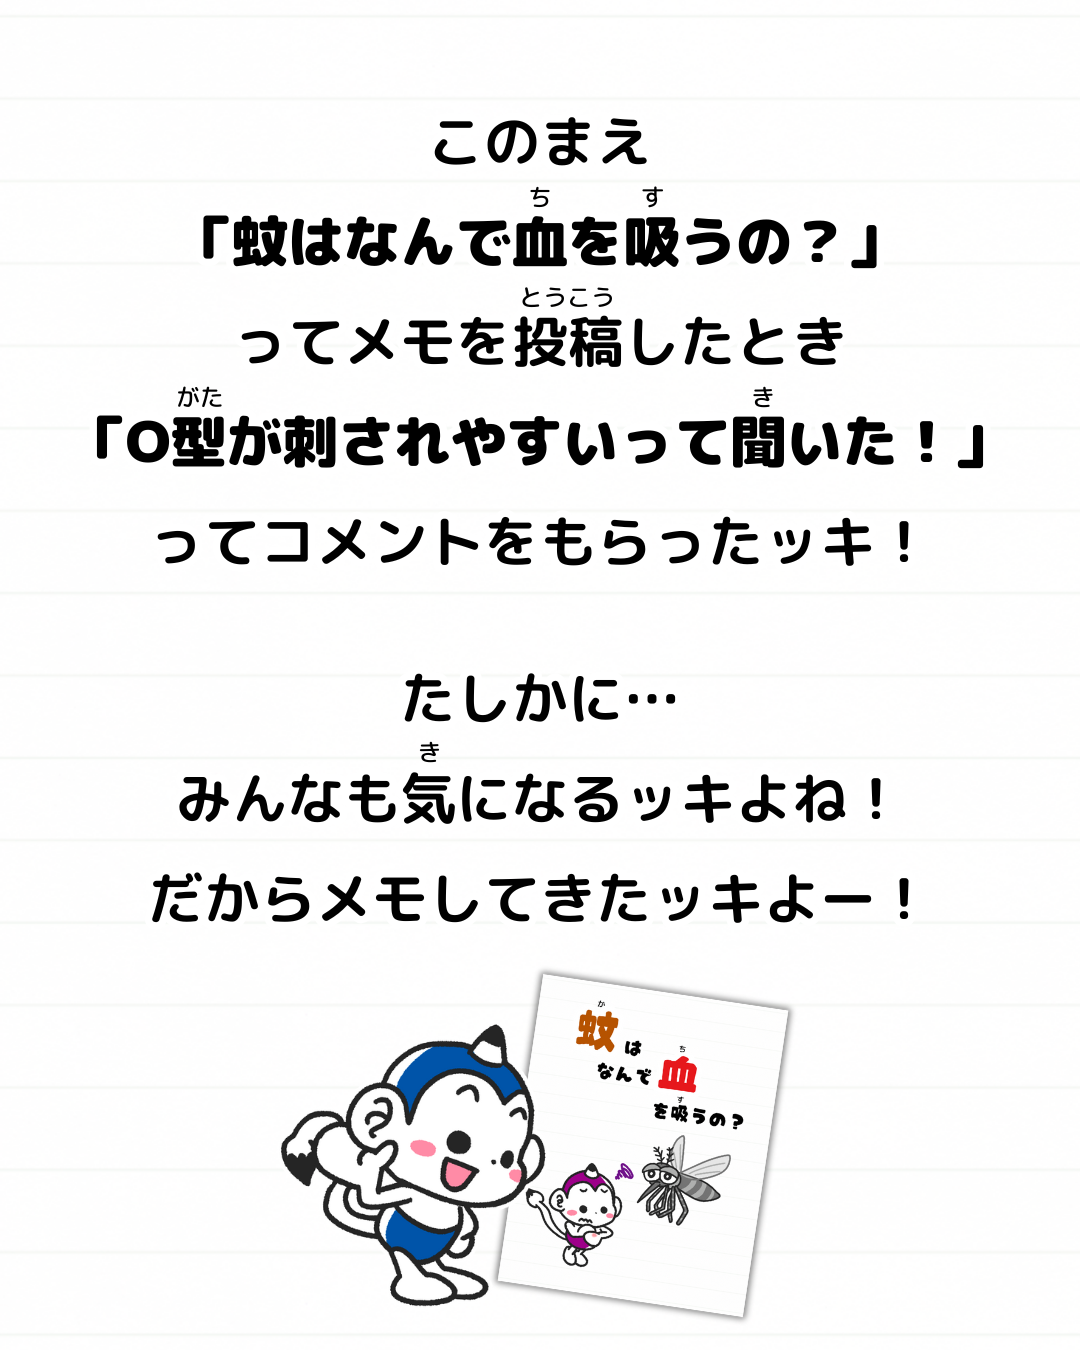 このまえ
ち す
「蚊はなんで血を吸うの？」
とうこう
ってメモを投稿したとき
がた き
「O型が刺されやすいって聞いた！」
ってコメントをもらったッキ！
たしかに…
き
みんなも気になるッキよね！
だからメモしてきたッキよー！
か
蚊は
ち
なんで血
す
を吸うの？